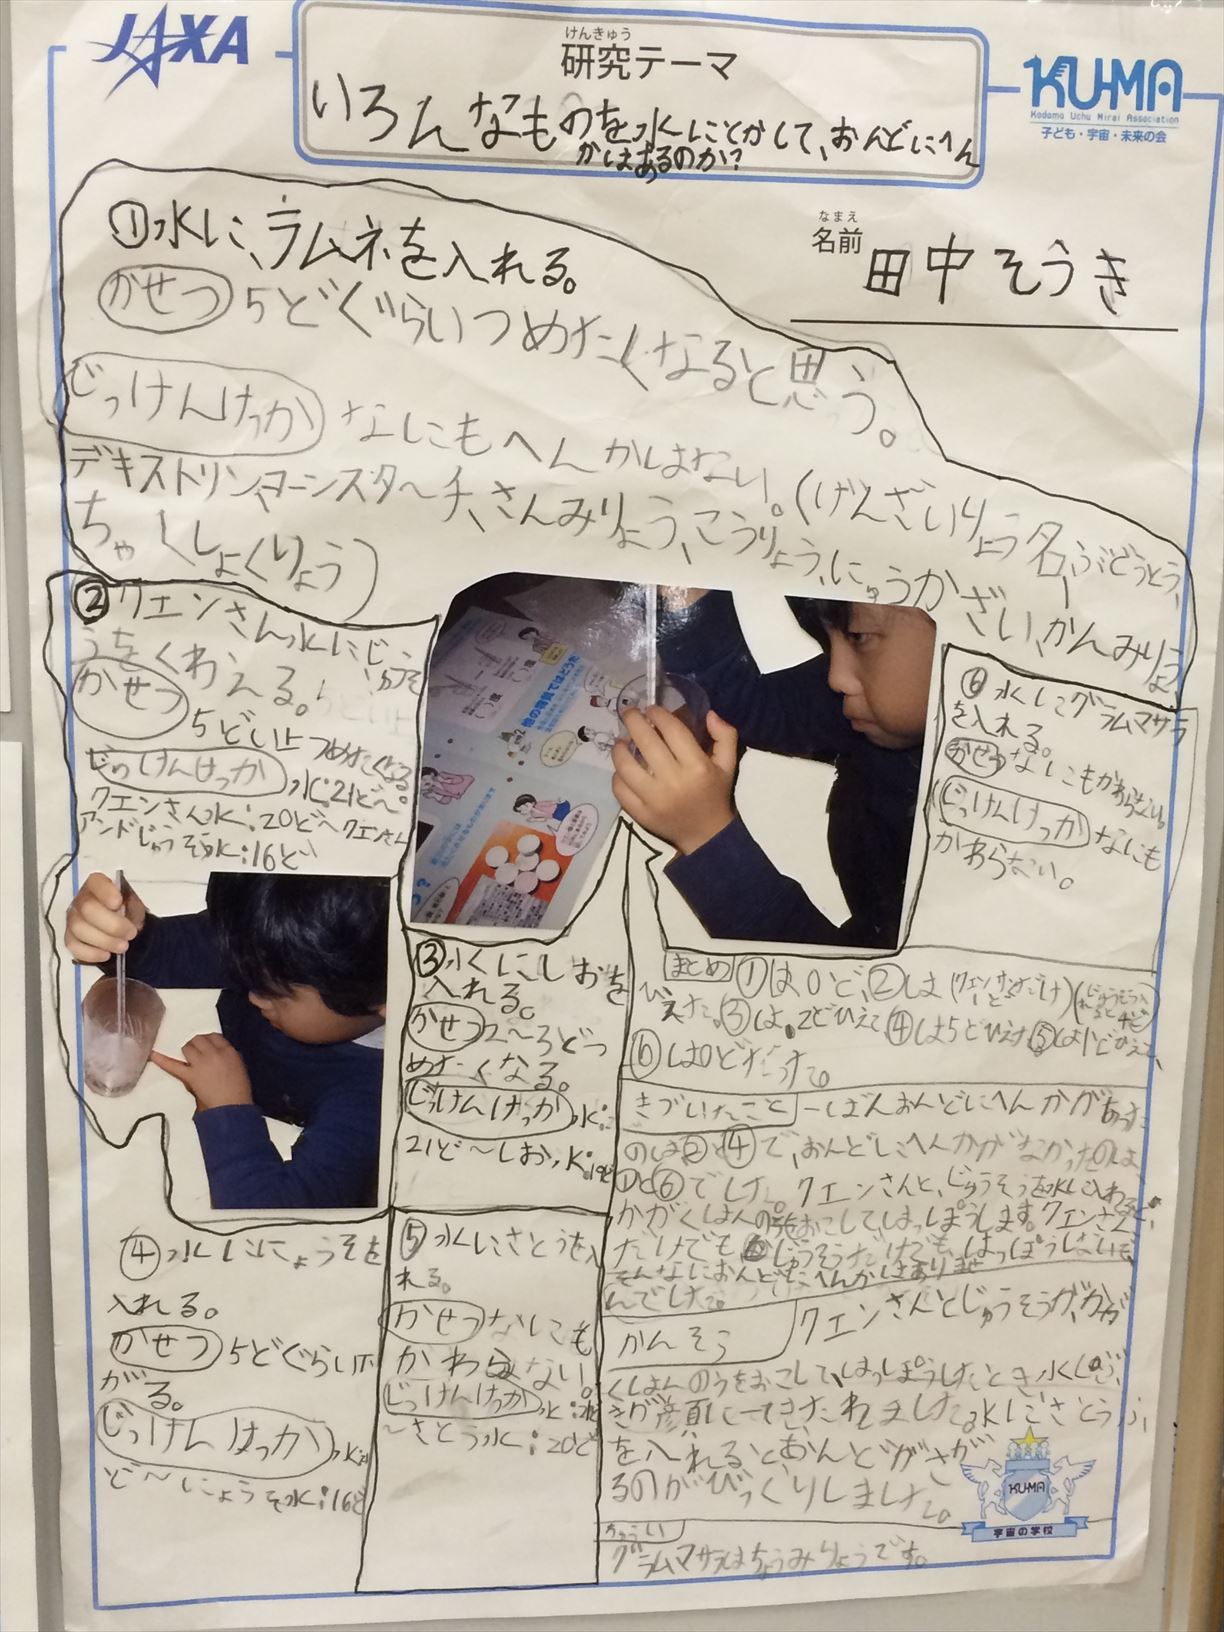 JAXA
けんきゅう
研究テーマ
いろんなものを水にとかして、おんどにへん
かはあるのか?
KU-MA
Kodomo Uchu Mirai Association
子ども・宇宙・未来の会
なまえ
名前 田中そうき
①水に、ラムネを入れる。
かせつ 5どぐらいつめたくなると思う。
じっけんけっか なにもへんかはない。(げんざいりょう名、ぶどうとう、
デキストリン、コーンスターチ、さんみりょう、こうりょう、にゅうかざい、かんみりょう
ちゃくしょくりょう)
②クエンさん水にじゅうそ
うをくわえる。
かせつ
5どい上つめたくなる
じっけんけっか 水:21ど〜
クエンさん水:20ど〜クエンさん
アンドじゅうそう水:16ど
他の物質ではどうか
③水にしおを
入れる。
かせつ 2〜3どつ
めたくなる。
じっけんけっか 水:
21ど〜しお水:19ど
④水ににょうそを
入れる。
かせつ 5どぐらい下
がる。
じっけんけっか 水:21
ど〜にょうそ水:16ど
⑤水にさとうを入
れる。
かせつ なにも
かわらない。
じっけんけっか 水:21ど
〜さとう水:20ど
⑥水にグラムマサラ
を入れる。
かせつ なにもかわらない。
じっけんけっか なにも
かわらない。
まとめ ①は0ど、②は(クエンサンだけ1ど)(じゅうそう入れると4ど)
ひえた。③は、2どひえて④は5どひえた⑤は1どひえて、
⑥は0どだった。
きづいたこと 一ばんおんどにへんかがあった
のは②と④で、おんどにへんかがなかったのは、
①と⑥でした。クエンさんと、じゅうそうを水に入れると、
かがくはんのうをおこして、はっぽうします。クエンさん
だけでもじゅうそうだけでも、はっぽうしないで、
そんなにおんどにへんかはありませ
んでした。
かんそう クエンさんとじゅうそうが、かが
くはんのうをおこして、はっぽうしたとき、水しぶ
きが顔にとんできたれました。水にさとう
を入れるとおんどがさが
るのがびっくりしました。
ちゅうい
グラムマサラはちょうみりょうです。
KU-MA
宇宙の学校